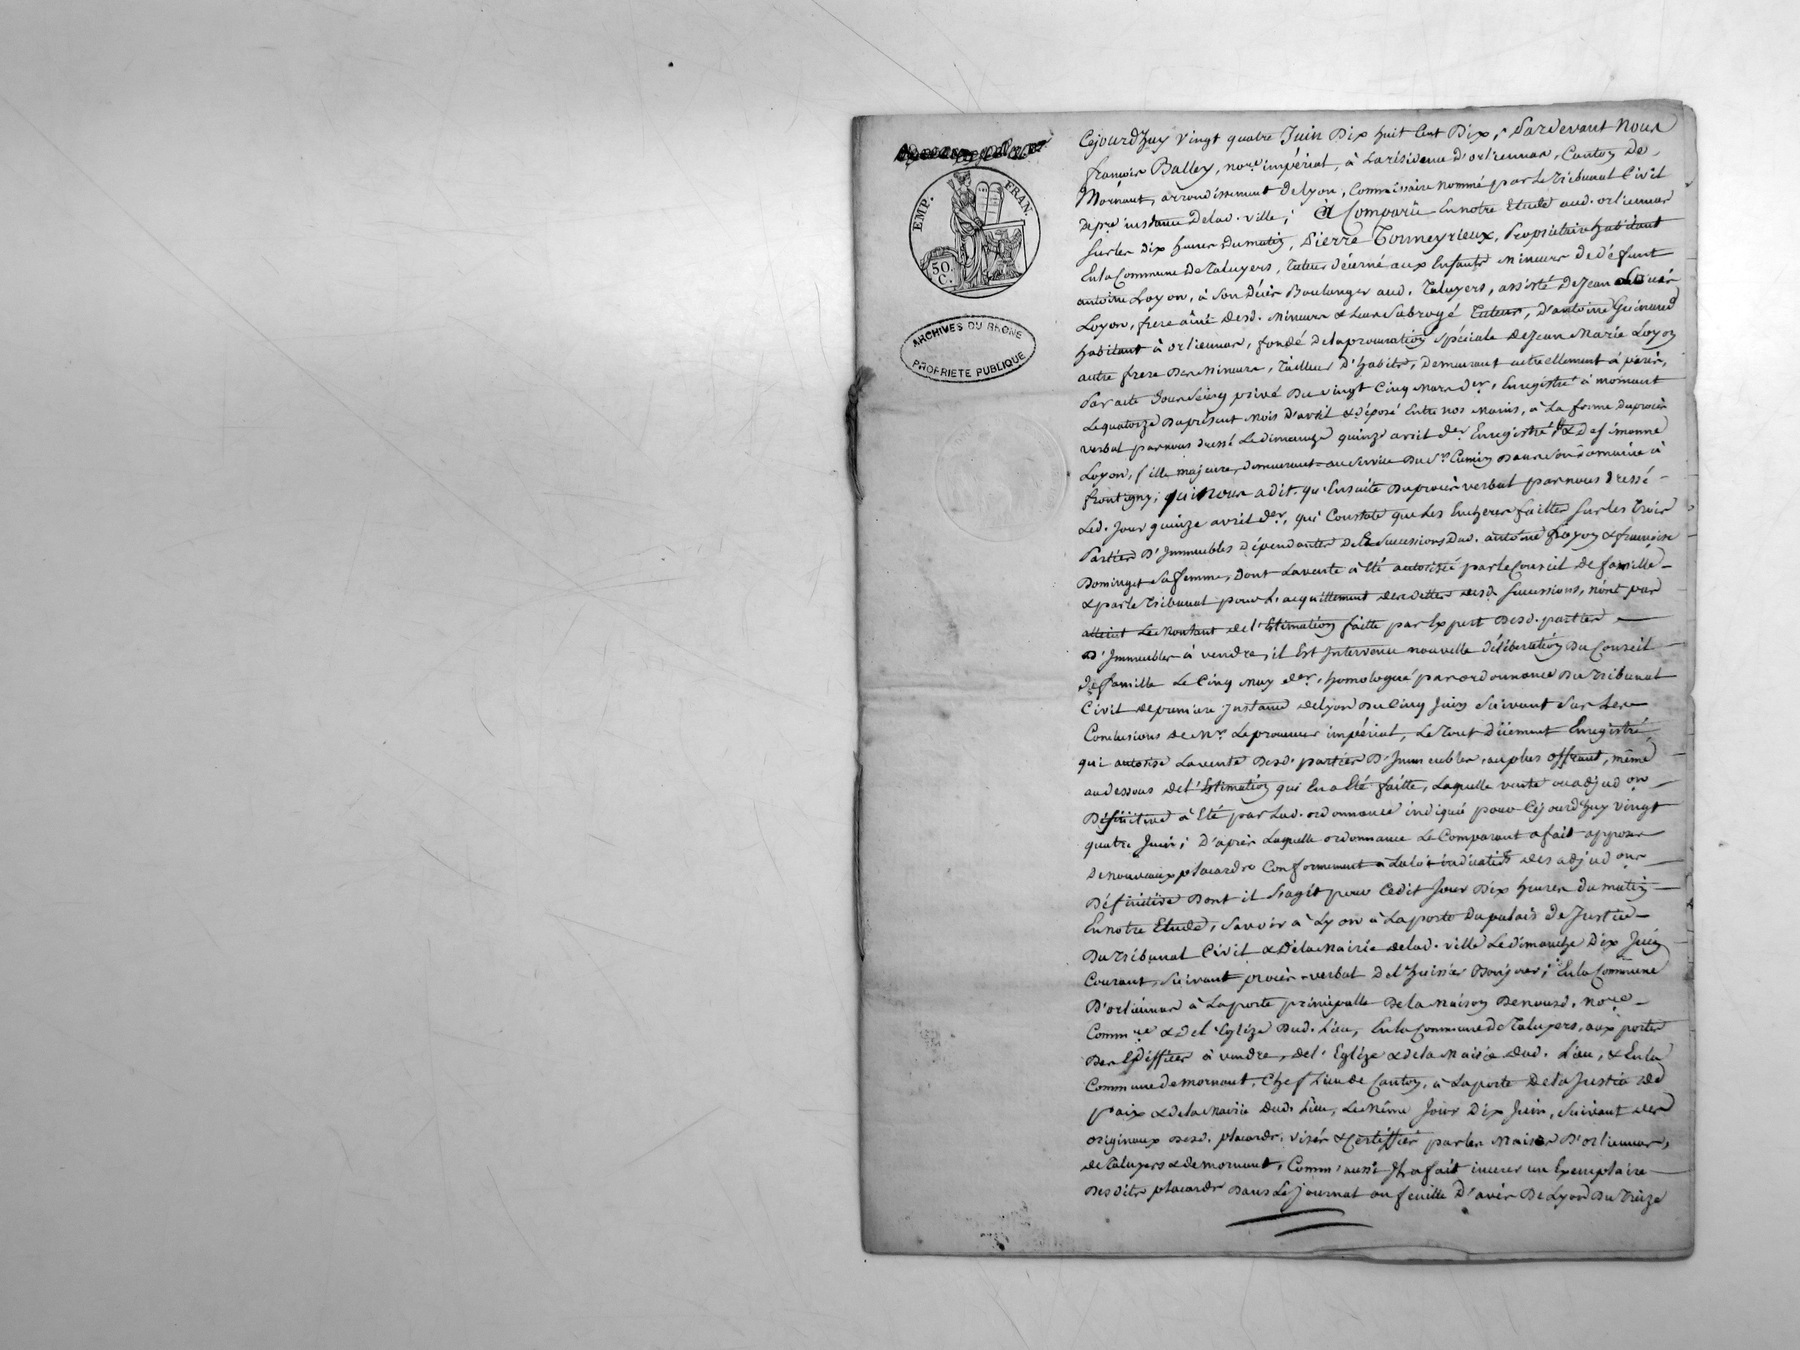 EMP. FRAN.
50. C.
ARCHIVES DU RHONE
PROPRIETE PUBLIQUE
Cejourd'huy vingt quatre Juin Dix huit Cent Dix, Pardevant Nous
françois Balley, nore impérial, à la résidence d'orliennas, Canton De
Mornant, arrondissement de Lyon, Commissaire nommé par le Tribunal Civil
de pre instance de lad. ville; Est Comparu En notre Etude aud. orliennas
sur les dix heures du matin, Pierre Tonneyrieux, Propriétaire habitant
En la Commune De Taluyers, Tuteur décerné aux Enfants Mineurs de défunt
antoine Loyon, à son décès Boulanger aud. Taluyers, assisté de Jean
Loyon, frere ainé desd. Mineurs & leur Subrogé Tuteur, d'antoine Guinand
habitant à orliennas, fondé de la procuration spéciale de Jean Marie Loyon
autre frere Des Mineurs, Tailleur d'habits, Demeurant actuellement à paris,
Par acte Sous seing privé Du vingt Cinq Mars der, Enregistré à mornant
Le quatorze Du présent Mois d'avril & déposé Entre nos Mains, à la forme du procès
verbal par nous dressé Le dimanche quinze avril der Enregistré & De simonne
Loyon, fille majeure, demeurant au Service Du Sr Cumin Dans son domaine à
frontigny; qui Nous a dit, qu'Ensuite Du procès verbal par nous dressé
Led. Jour quinze avril der, qui Constate que Les Encheres faittes sur les Trois
Parties D'Immeubles dépendantes De la Successions Dud. antoine Loyon & françoise
Dominget Sa femme, dont La vente a été autorisée par le Conseil de famille
& par le Tribunal pour L'acquittement des dettes desd. Successions, n'ont pas
atteint Le Montant de l'Estimation faitte par Expert desd. parties
D'Immeubles à vendre, il Est Intervenu nouvelle délibération Du Conseil
de famille Le Cinq May der, homologué par ordonnance Du Tribunal
Civil de premiere Instance de Lyon Du Cinq Juin Suivant Sur Les
Conclusions de Mr. Le procureur impérial, Le Tout dûement Enregistré
qui autorise La vente Desd. parties D'Immeubles, au plus offrant, même
au dessous de l'Estimation qui En a Eté faitte, Laquelle vente ou adjudon
Définitive a Eté par Lad. ordonnance indiqué pour Cejourd'huy vingt
quatre Juin; D'après Laquelle ordonnance Le Comparant a fait apposer
De nouveaux placards Conformement à La loi indicatifs des adjudons
Définitive Dont il s'agit pour Cedit Jour Dix heures du matin
En notre Etude, Savoir à Lyon à La porte Du palais De Justice
Du Tribunal Civil & De la Mairie de lad. ville Le dimanche Dix Juin
Courant, Suivant procès-verbal De l'huissier; En la Commune
D'orliennas à La porte principalle De la Maison De nousd. nore
Commre & de l'Eglize Dud. Lieu, En la Commune de Taluyers, aux portes
Des Ediffices à vendre, de l'Eglize & de la Mairie dud. Lieu, & En la
Commune de mornant, Chef Lieu de Canton, à La porte De la Justice de
paix & de la Mairie dud. Lieu, Le Même Jour Dix Juin, Suivant des
originaux desd. placards, visés & Certiffiés par les Maires D'orliennas,
de Taluyers & de mornant, Comm'aussi Il a fait inserer un Exemplaire
Desdits placards Dans Le Journal ou feuille D'avis De Lyon Du Treize